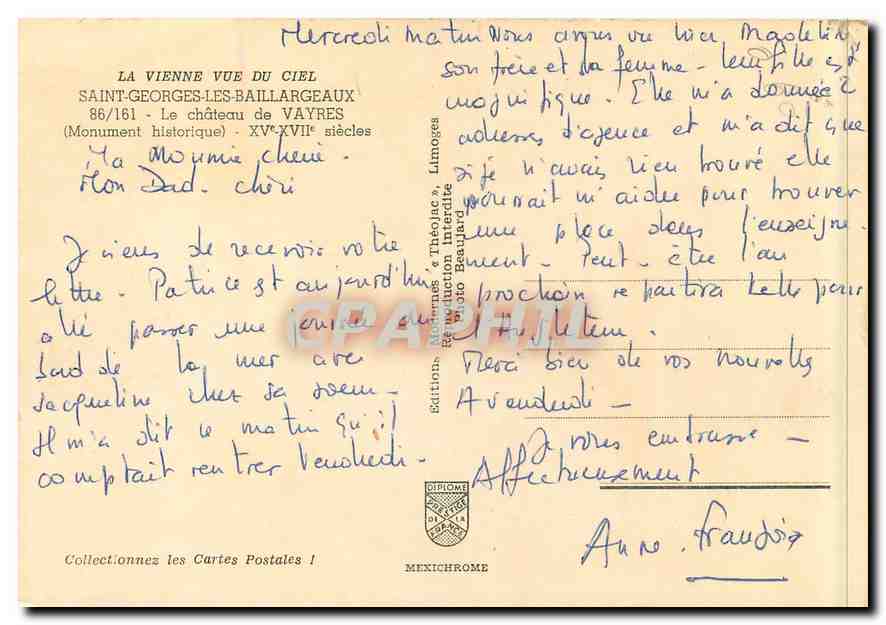 LA VIENNE VUE DU CIEL
SAINT-GEORGES-LES-BAILLARGEAUX
86/161 - Le château de VAYRES
(Monument historique) - XVe-XVIIe siècles
Mercredi matin
Ma Moumie chérie.
Mon Dad. chéri
Je viens de recevoir votre
lettre. Patrice est aujourd'hui
allé passer une journée au
bord de la mer avec
Jacqueline chez sa soeur.
Il m'a dit ce matin qu'il
comptait rentrer Vendredi.
Nous avons vu hier Madeleine
son frère et sa femme - leur fille est
magnifique. Elle m'a donnée 2
adresses d'agence et m'a dit que
si je n'avais rien trouvé elle
pourrait m'aider pour trouver
une place dans l'enseigne-
ment. Peut-être l'an
prochain repartira t-elle pour
Merci bien de vos nouvelles
A vendredi -
Je vous embrasse -
Affectueusement
Anne. Françoise
Editions Modernes « Théojac », Limoges
Reproduction Interdite
Photo Beaujard
CPAPHIL
DIPLOME
PRESTIGE
DE LA
FRANCE
MEXICHROME
Collectionnez les Cartes Postales !